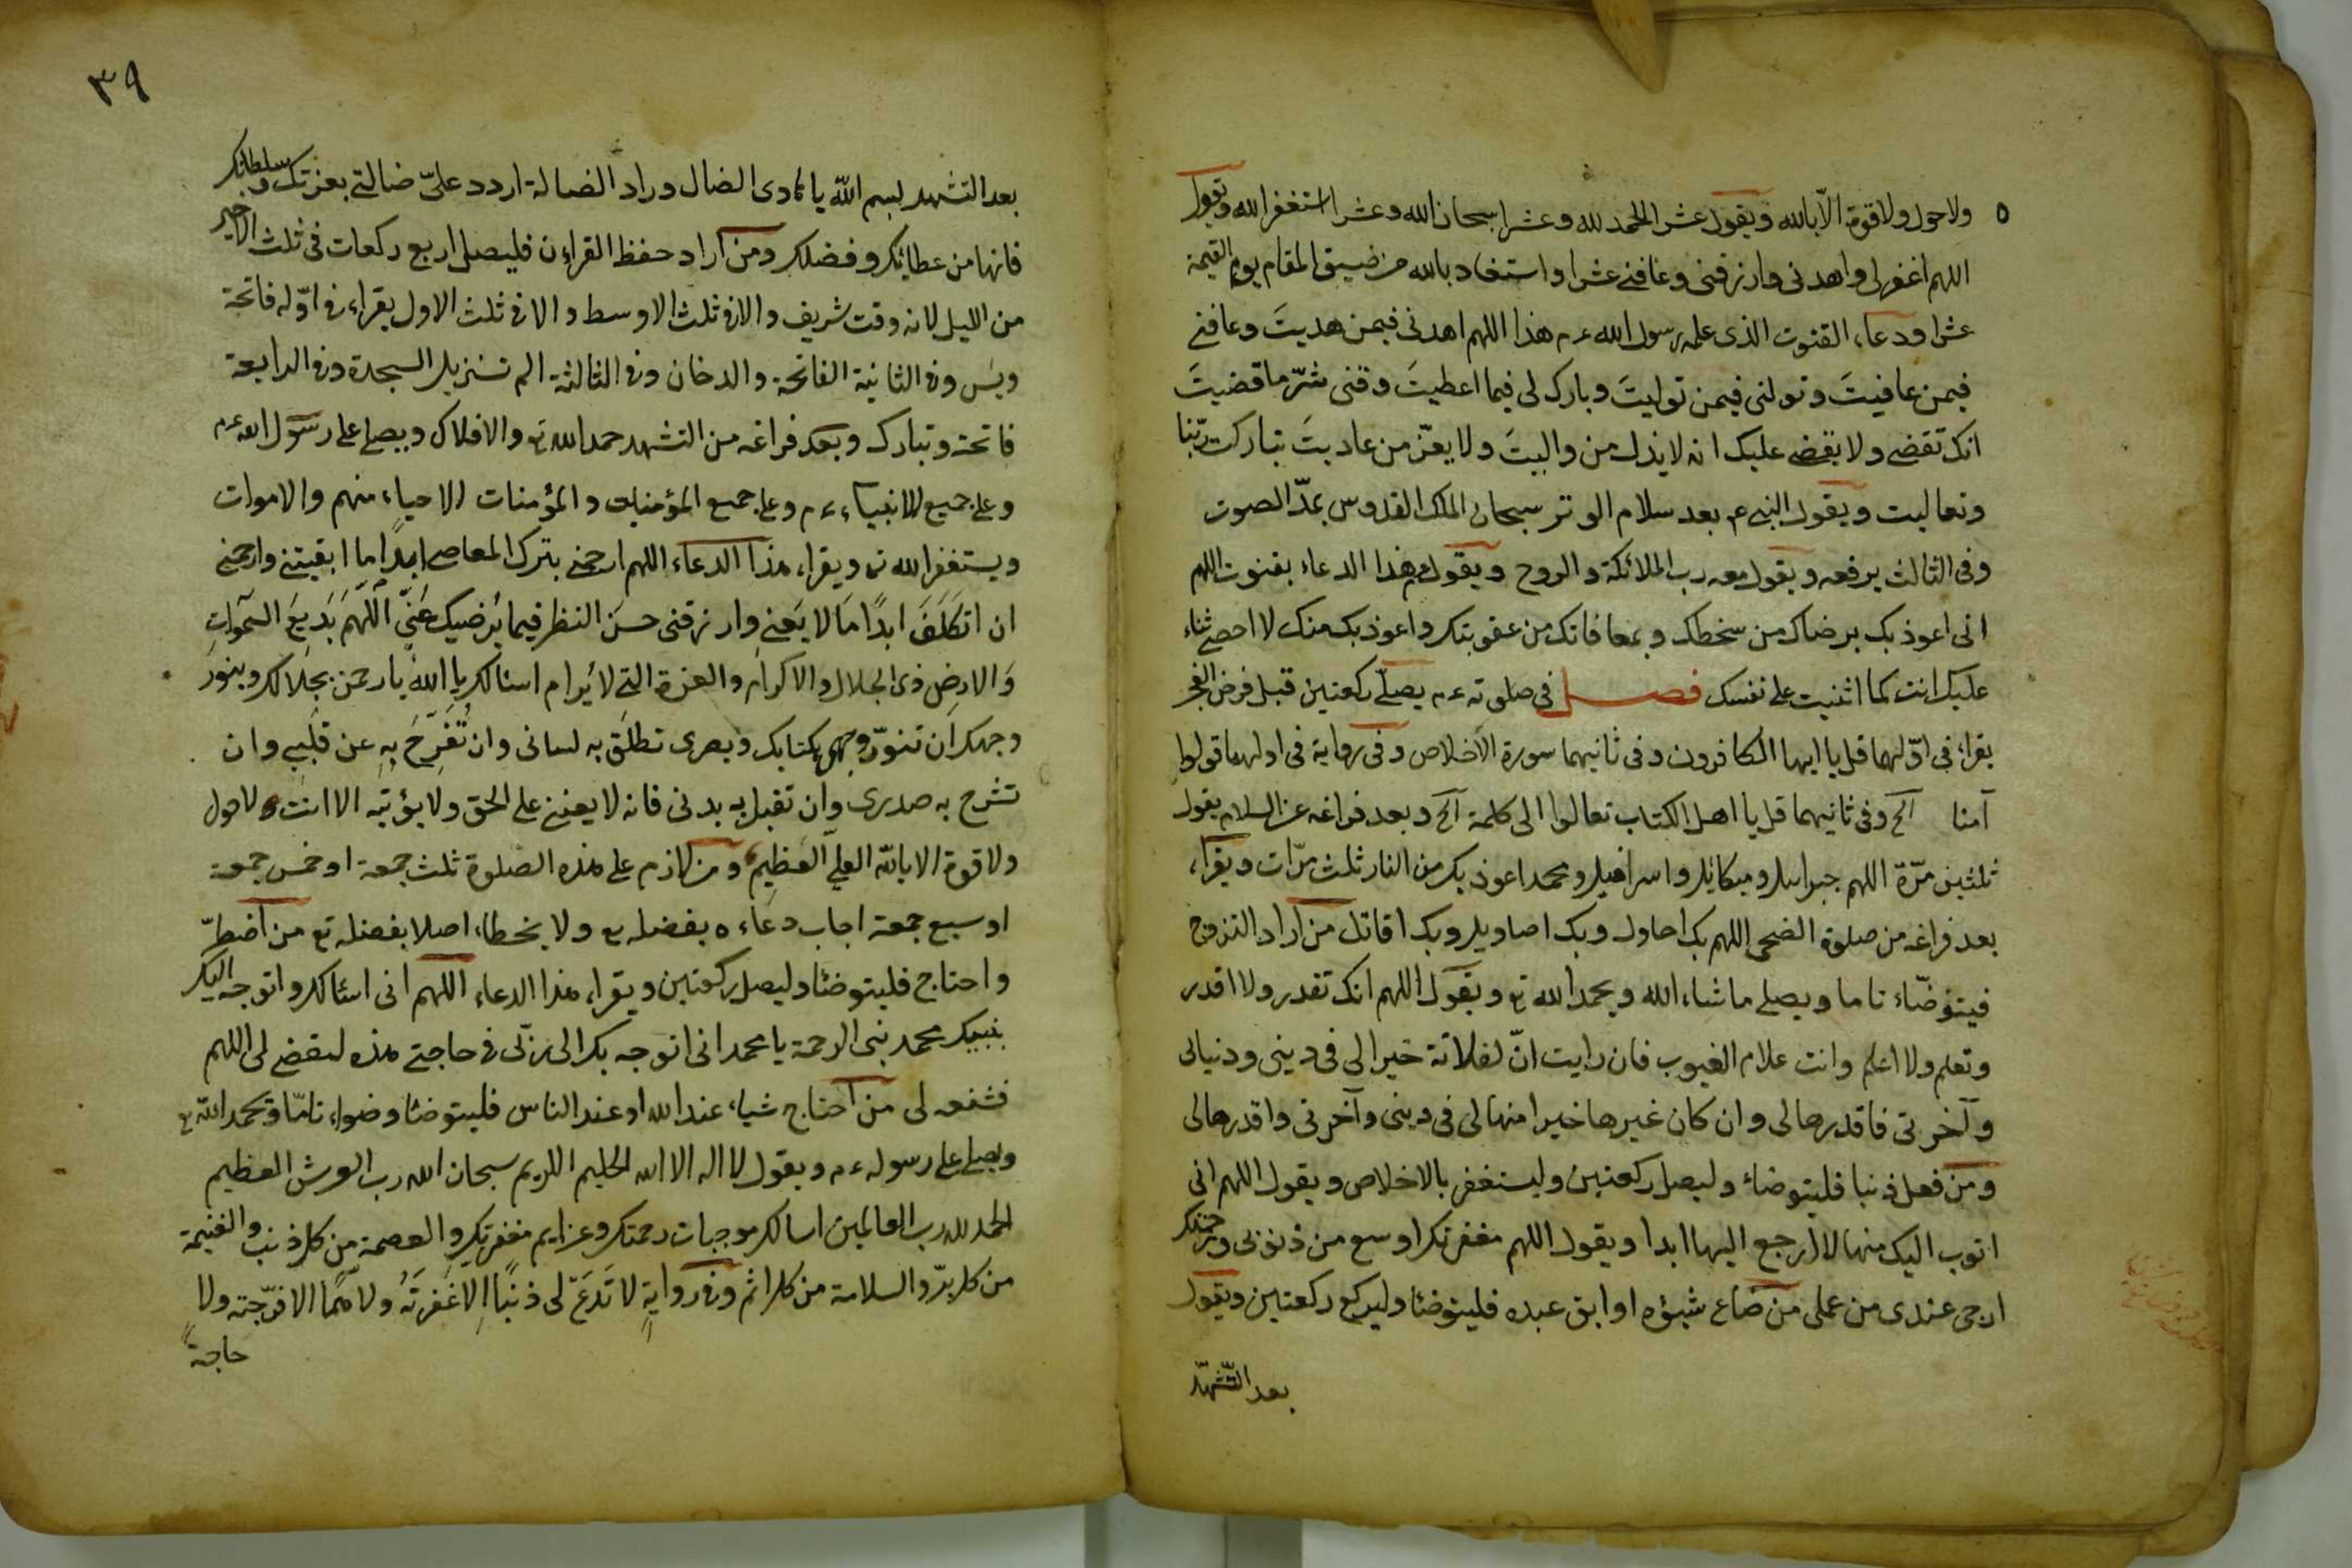 ولاحول ولاقوة الّا بالله ويقول عشر الحمد لله وعشرا سبحان الله وعشرا استغفر الله ويقول
اللهم اغفر لى واهدنى وارزقنى وعافنى عشرا و بالله من ضيق المقام يوم القيمة
عشرا ودعاء القنوت الذى علمه رسول الله ءم هذا اللهم اهدنى فيمن هديتَ وعافنى
فيمن عافيتَ وتولنى فيمن توليتَ وبارك لى فيما اعطيتَ وقنى شرّ ما قضيتَ
انك تقضى ولا يقضى عليك انه لا يذل من واليتَ ولا يعزّ من عاديتَ تباركت ربّنا
وتعاليت ويقول النبى ءم بعد سلام الوتر سبحان الملك القدوس يمدّ الصوت
وفى الثالث يرفعه ويقول معه رب الملائكة والروح ويقول هذا الدعاء بقنوت اللهم
انى اعوذ بك برضاك من سخطك وبمعافاتك من عقوبتك واعوذ بك منك لا احصى ثناء
عليك انت كما اثنيت على نفسك فصل فى صلوته ءم يصلّى ركعتين قبل فرض الفجر
يقراء فى اوّلهما قل يا ايها الكافرون وفى ثانيهما سورة الاخلاص وفى رواية فى اولهما قولوا
آمنا آلخ وفى ثانيهما قل يا اهل الكتاب تعالوا الى كلمة آلخ وبعد فراغه عن السلام يقول
ثلثين مرّة اللهم جبرائيل وميكائيل واسرافيل ومحمد اعوذ بك من النار ثلث مرّات ويقراء
بعد فراغه من صلوة الضحى اللهم بك احاول وبك اصاويل وبك اقاتل من اراد التزوج
فيتوضّاء تاما ويصلى ماشاء الله ويحمد الله تع ويقول اللهم انك تقدر ولا اقدر
وتعلم ولا اعلم وانت علام الغيوب فان رايت انّ لفلانة خيرا لى فى دينى ودنياى
وآخرتى فاقدرها لى وان كان غيرها خيرا منها لى فى دينى وآخرتى واقدرها لى
ومن فعل ذنبا فليتوضاء وليصل ركعتين وليستغفر بالاخلاص ويقول اللهم انى
اتوب اليك منها لا ارجع اليها ابدا ويقول اللهم مغفرتك اوسع من ذنوبى ورحمتك
ارجى عندى من عملى من ضاع شيؤه او ابق عبده فليتوضئا وليركع ركعتين ويقول
بعد التّشهّد
٣٩
بعد التشهد بسم الله يا هادى الضال وراد الضالة اردد علىّ ضالتى بعزتك وسلطانك
فانها من عطائك وفضلك ومن اراد حفظ القراءن فليصلى اربع ركعات فى ثلث الاخير
من الليل لانه وقت شريف والا فى ثلث الاوسط والا فى ثلث الاول يقراء فى اوّله فاتحة
ويس وفى الثانية الفاتحة والدخان وفى الثالثة الم تنزيل السجدة وفى الرابعة
فاتحة وتبارك وبعد فراغه من التشهد حمد الله تع والافلاك ويصلى على رسول الله ءم
وعلى جميع الانبياء ءم وعلى جميع المؤمنين والمؤمنات الاحياء منهم والاموات
ويستغفر الله ته ويقراء هذا الدعاء اللهم ارحمنى بترك المعاصى ابدًا ما ابقيتنى وارحمنى
ان اتكلف ابدًا ما لا يعنى وارزقنى حسن النظر فيما يُرضيك عنّى اللّهمّ بديع السموات
والارض ذى الجلال والاكرام والعزة التى لا يُرام اسالك يا الله يا رحمن بجلالك وبنور
وجهك ان تنوّر بكتابك وبصرى تطلق به لسانى وان تُفَرِّجَ به عن قلبى وان
تشرح به صدرى وان تقبل به بدنى فانه لا يعيننى على الحق ولا يؤتيه الا انت ولا حول
ولا قوة الا بالله العلىّ العظيم ومن لازم على هذه الصلوة ثلث جمعة او خمس جمعة
او سبع جمعة اجاب دعاءه بفضله تع ولا يخطاء اصلا بفضله تع من اضطرّ
واحتاج فليتوضئا وليصل ركعتين ويقراء هذا الدعاء اللهم انى اسئالك واتوجه اليك
بنبيك محمد نبى الرحمة يا محمد انى اتوجه بك الى ربّى فى حاجتى هذه لتقضى لى اللهم
فشفعه لى من احتاج شياء عند الله او عند الناس فليتوضئا وضواء تامّا ويحمد الله تع
ويصلى على رسوله ءم ويقول لا اله الا الله الحليم الكريم سبحان الله رب العرش العظيم
الحمد لله رب العالمين اسالك موجبات رحمتك وعزايم مغفرتك والعصمة من كل ذنب والغنيمة
من كل برّ والسلامة من كل اثم وفى رواية لا تَدَعْ لى ذنبًا الا غَفَرتَهُ ولا همًّا الا فرّجته ولا
حاجةً